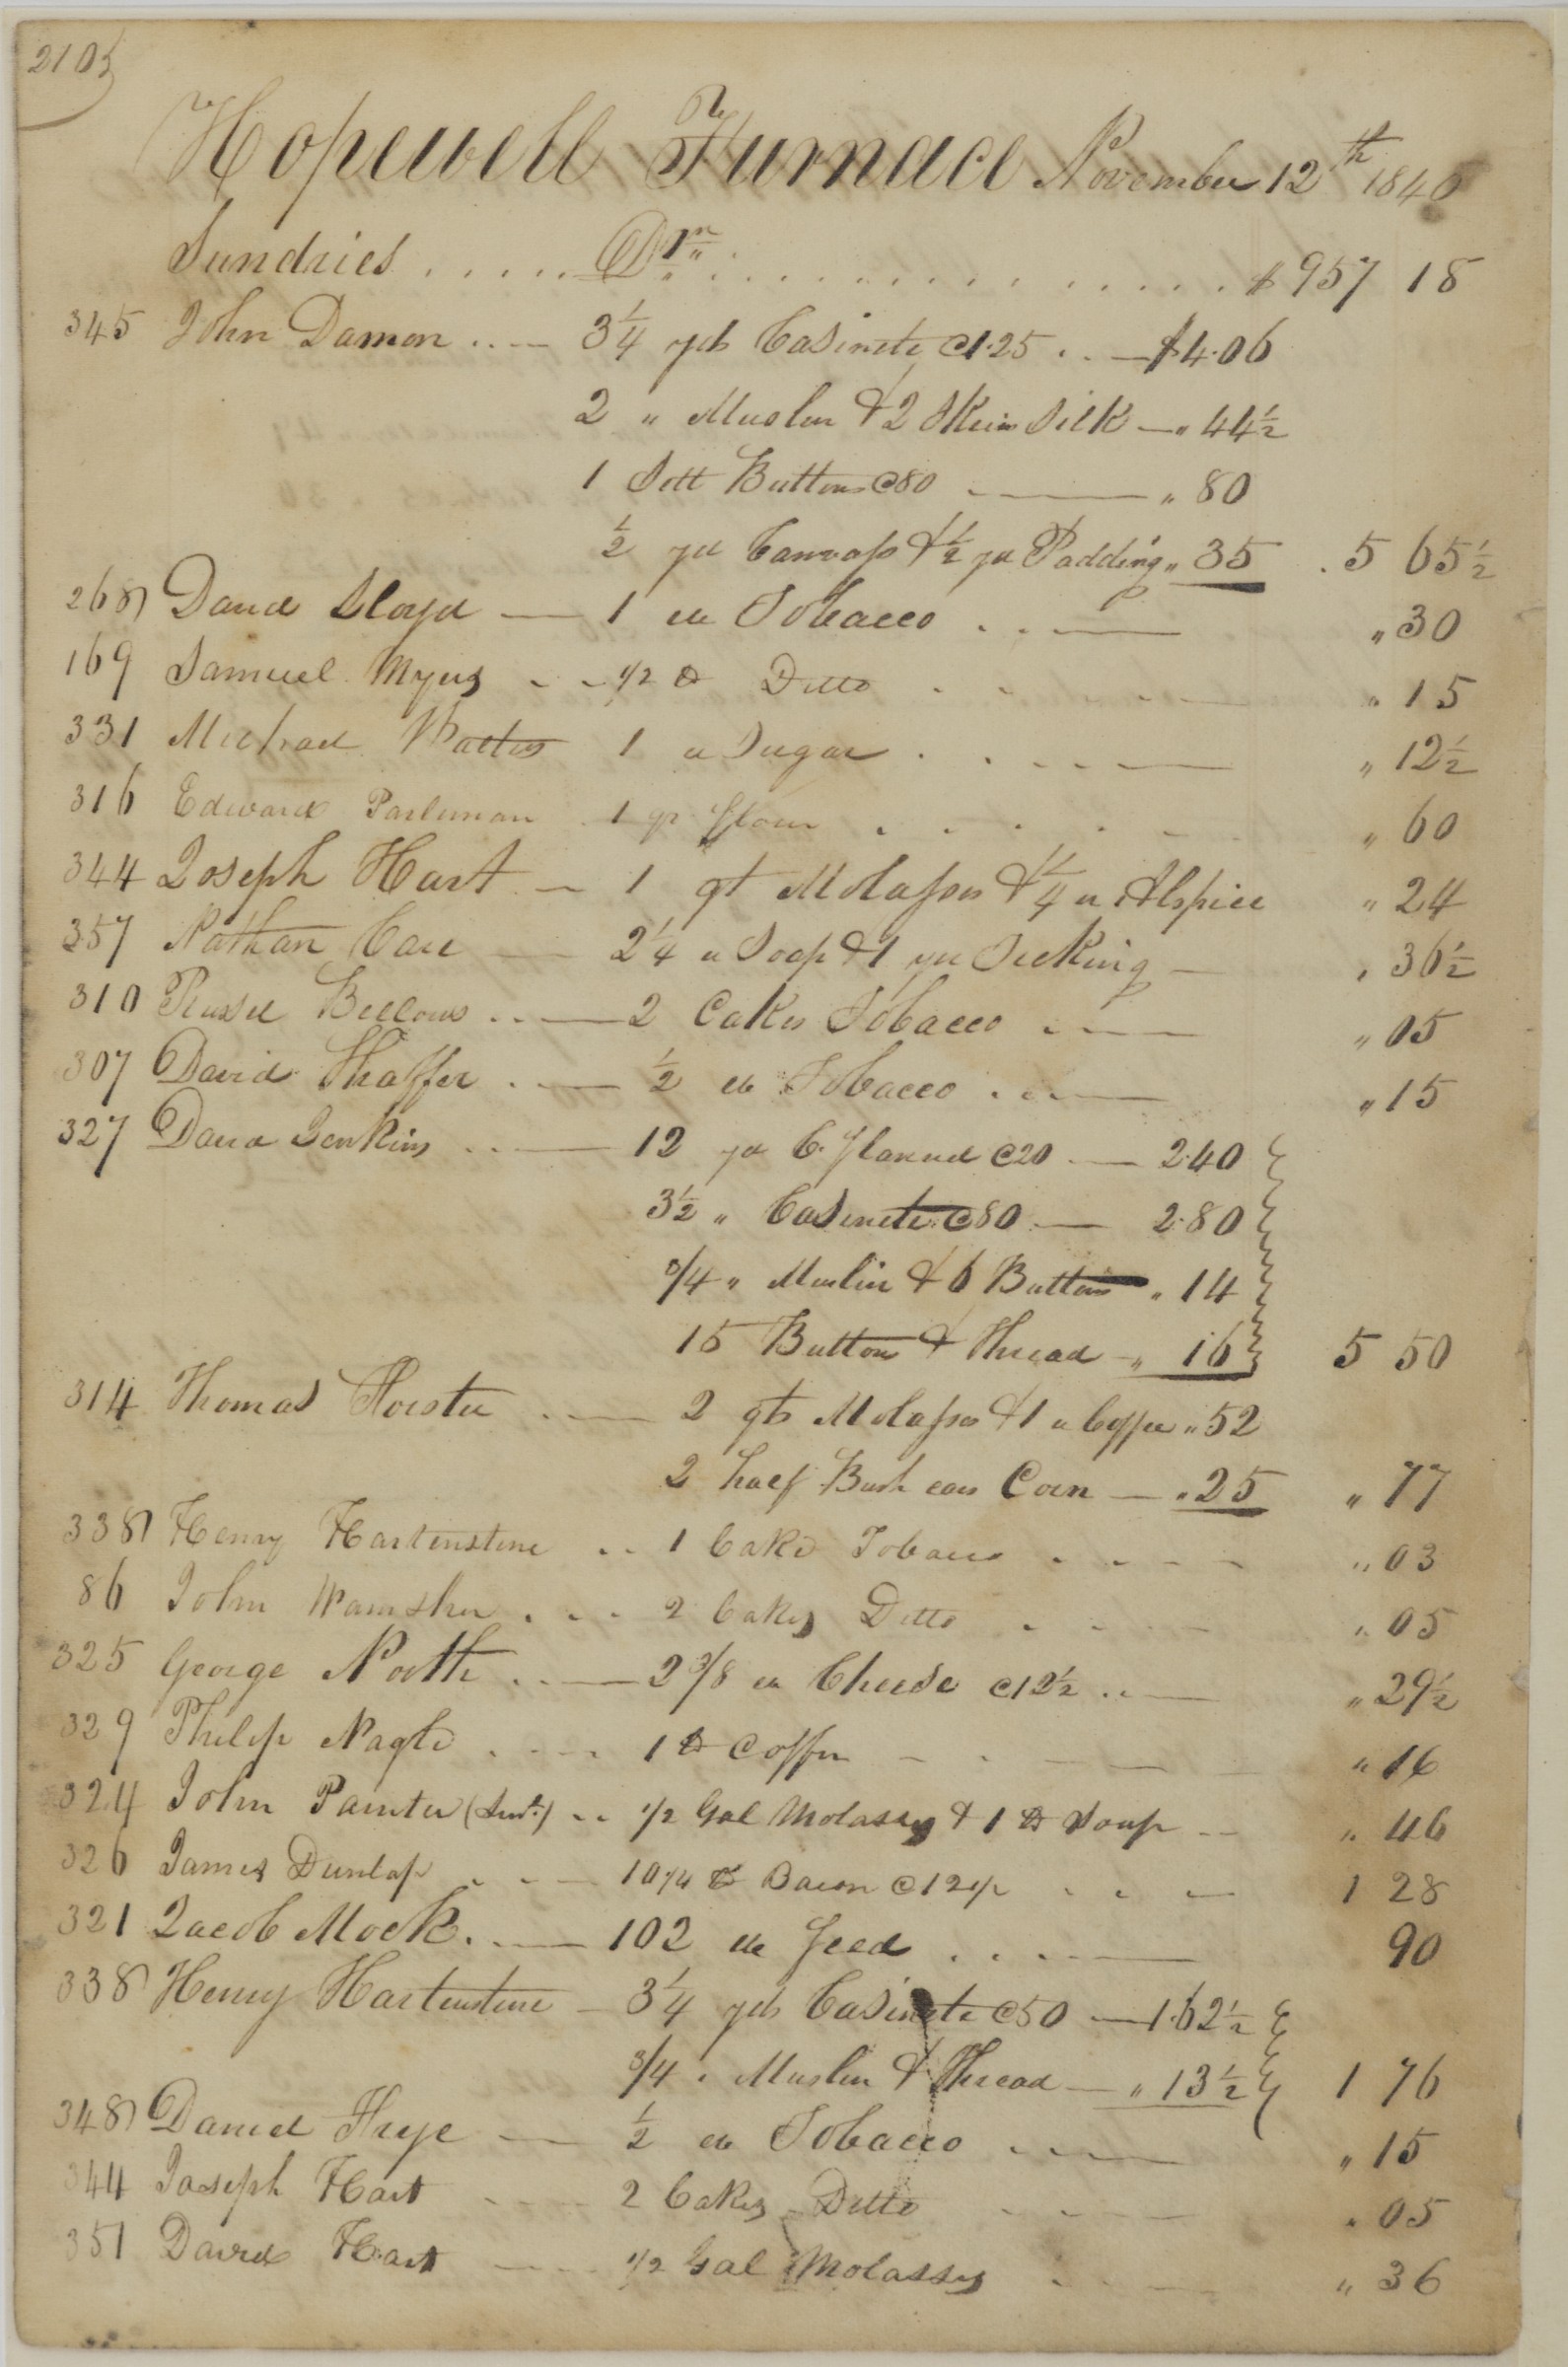 210
Hopewell Furnace November 12th 1840
Sundries ..... Drs ............... $957 18
345 John Damon ..— 3 1/4 yds Casinete @1.25 ..— $4.06
2 " Muslin & 2 Skein Silk — " 44 1/2
1 Sett Buttons @80 — " 80
1/2 yd Canvass & 1/2 yd Padding " 35 . 5 65 1/2
268 David Lloyd — 1 lb Tobacco ..— " 30
169 Samuel Myers .. 1/2 lb Ditto . . — " 15
331 Michael Watters 1 lb Sugar . . — " 12 1/2
316 Edward 1 qr flour . . . . " 60
344 Joseph Hart — 1 qt Molasses & 1/4 lb Alspice " 24
357 Nathan Care — 2 1/4 lb Soap & 1 yd Ticking — " 36 1/2
310 Russel Bellows ..— 2 Cakes Tobacco .— " 05
307 David Shaffer .— 1/2 lb Tobacco ..— " 15
327 David Jenkins ..— 12 yd C. flannel @20 .— 2.40
3 1/2 " Casinete @80 — 2.80
3/4 " Muslin & 6 Buttons " 14
15 Buttons & Thread — " 16 5 50
314 Thomas .— 2 qts Molasses & 1 lb Coffee " 52
2 half Bush ears Corn — " 25 " 77
338 Henry Hartenstine .. 1 Cake Tobacco . . . " 03
86 John Wamsher ... 2 Cakes Ditto . . . " 05
325 George North .— 2 3/8 lb Cheese @12 1/2 ..— " 29 1/2
329 Philip Nagle .... 1 lb Coffee — . — " 16
324 John Painter .. 1/2 Gal Molasses & 1 lb Soap .. " 46
326 James Dunlap ..— 10 1/4 lb Bacon @12 1/2 . . — 1 28
321 Jacob Mock .— 102 lb feed ....— 90
338 Henry Hartenstine — 3 1/4 yds Casinete @50 — 1.62 1/2
3/4 " Muslin & Thread — " 13 1/2 1 76
348 Daniel Frye — 1/2 lb Tobacco ..— " 15
344 Joseph Hart .... 2 Cakes Ditto . . — " 05
351 David Hart — 1/2 Gal Molasses . . — " 36